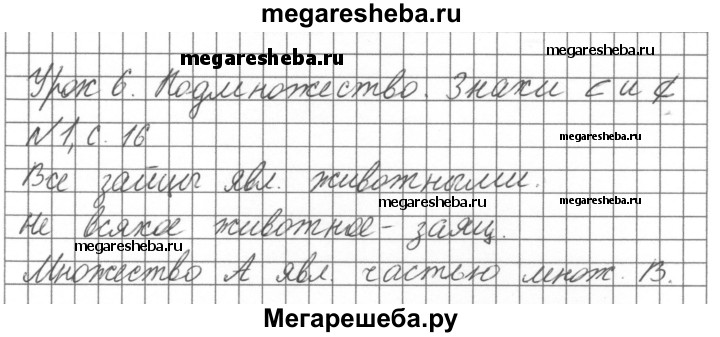 megaresheba.ru
megaresheba.ru
megaresheba.ru
Урок 6. Подмножество. Знаки ⊂ и ⊄
megaresheba.ru
№1, с. 16
megaresheba.ru
Все зайцы явл. животными.
megaresheba.ru
megaresheba.ru
Не всякое животное - заяц.
megaresheba.ru
Множество А явл. частью множ. В.
Мегарешеба.ру